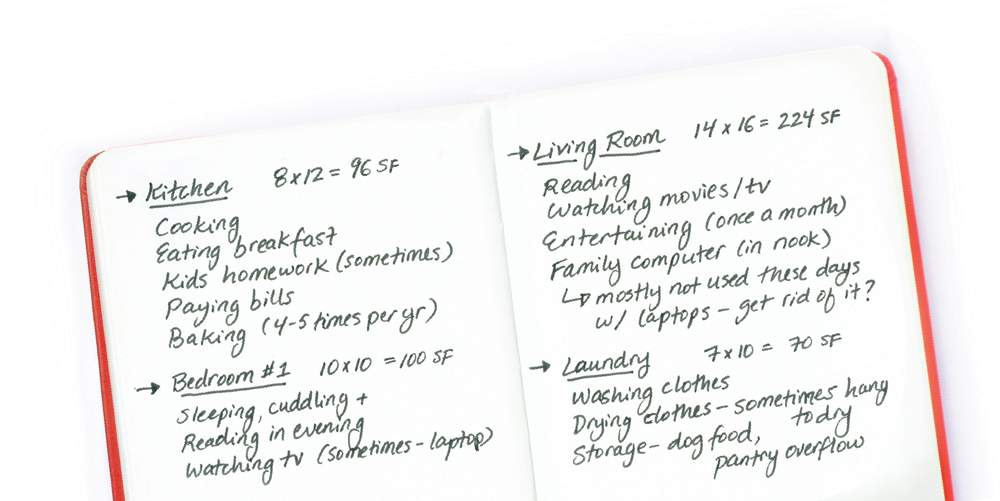 → Kitchen 8x12 = 96 SF
Cooking
Eating breakfast
Kids homework (sometimes)
Paying bills
Baking (4-5 times per yr)
→ Bedroom #1 10x10 = 100 SF
Sleeping, cuddling +
Reading in evening
Watching tv (sometimes - laptop)
→ Living Room 14 x 16 = 224 SF
Reading
Watching movies/tv
Entertaining (once a month)
Family computer (in nook)
↳ mostly not used these days
w/ laptops - get rid of it?
→ Laundry 7x10 = 70 SF
Washing clothes
Drying clothes - sometimes hang
to dry
Storage - dog food,
pantry overflow